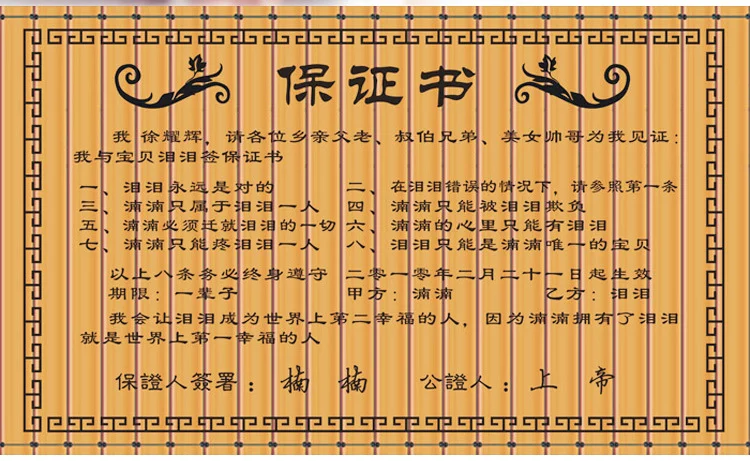 保证书
我 徐耀辉，请各位乡亲父老、叔伯兄弟、美女帅哥为我见证：
我与宝贝泪泪签保证书
一、泪泪永远是对的 二、在泪泪错误的情况下，请参照第一条
三、湳湳只属于泪泪一人 四、湳湳只能被泪泪欺负
五、湳湳必须迁就泪泪的一切 六、湳湳的心里只能有泪泪
七、湳湳只能疼泪泪一人 八、泪泪只能是湳湳唯一的宝贝
以上八条务必终身遵守 二零一零年二月二十一日起生效
期限：一辈子 甲方：湳湳 乙方：泪泪
我会让泪泪成为世界上第二幸福的人，因为湳湳拥有了泪泪
就是世界上第一幸福的人
保證人簽署：楠 楠 公證人：上 帝